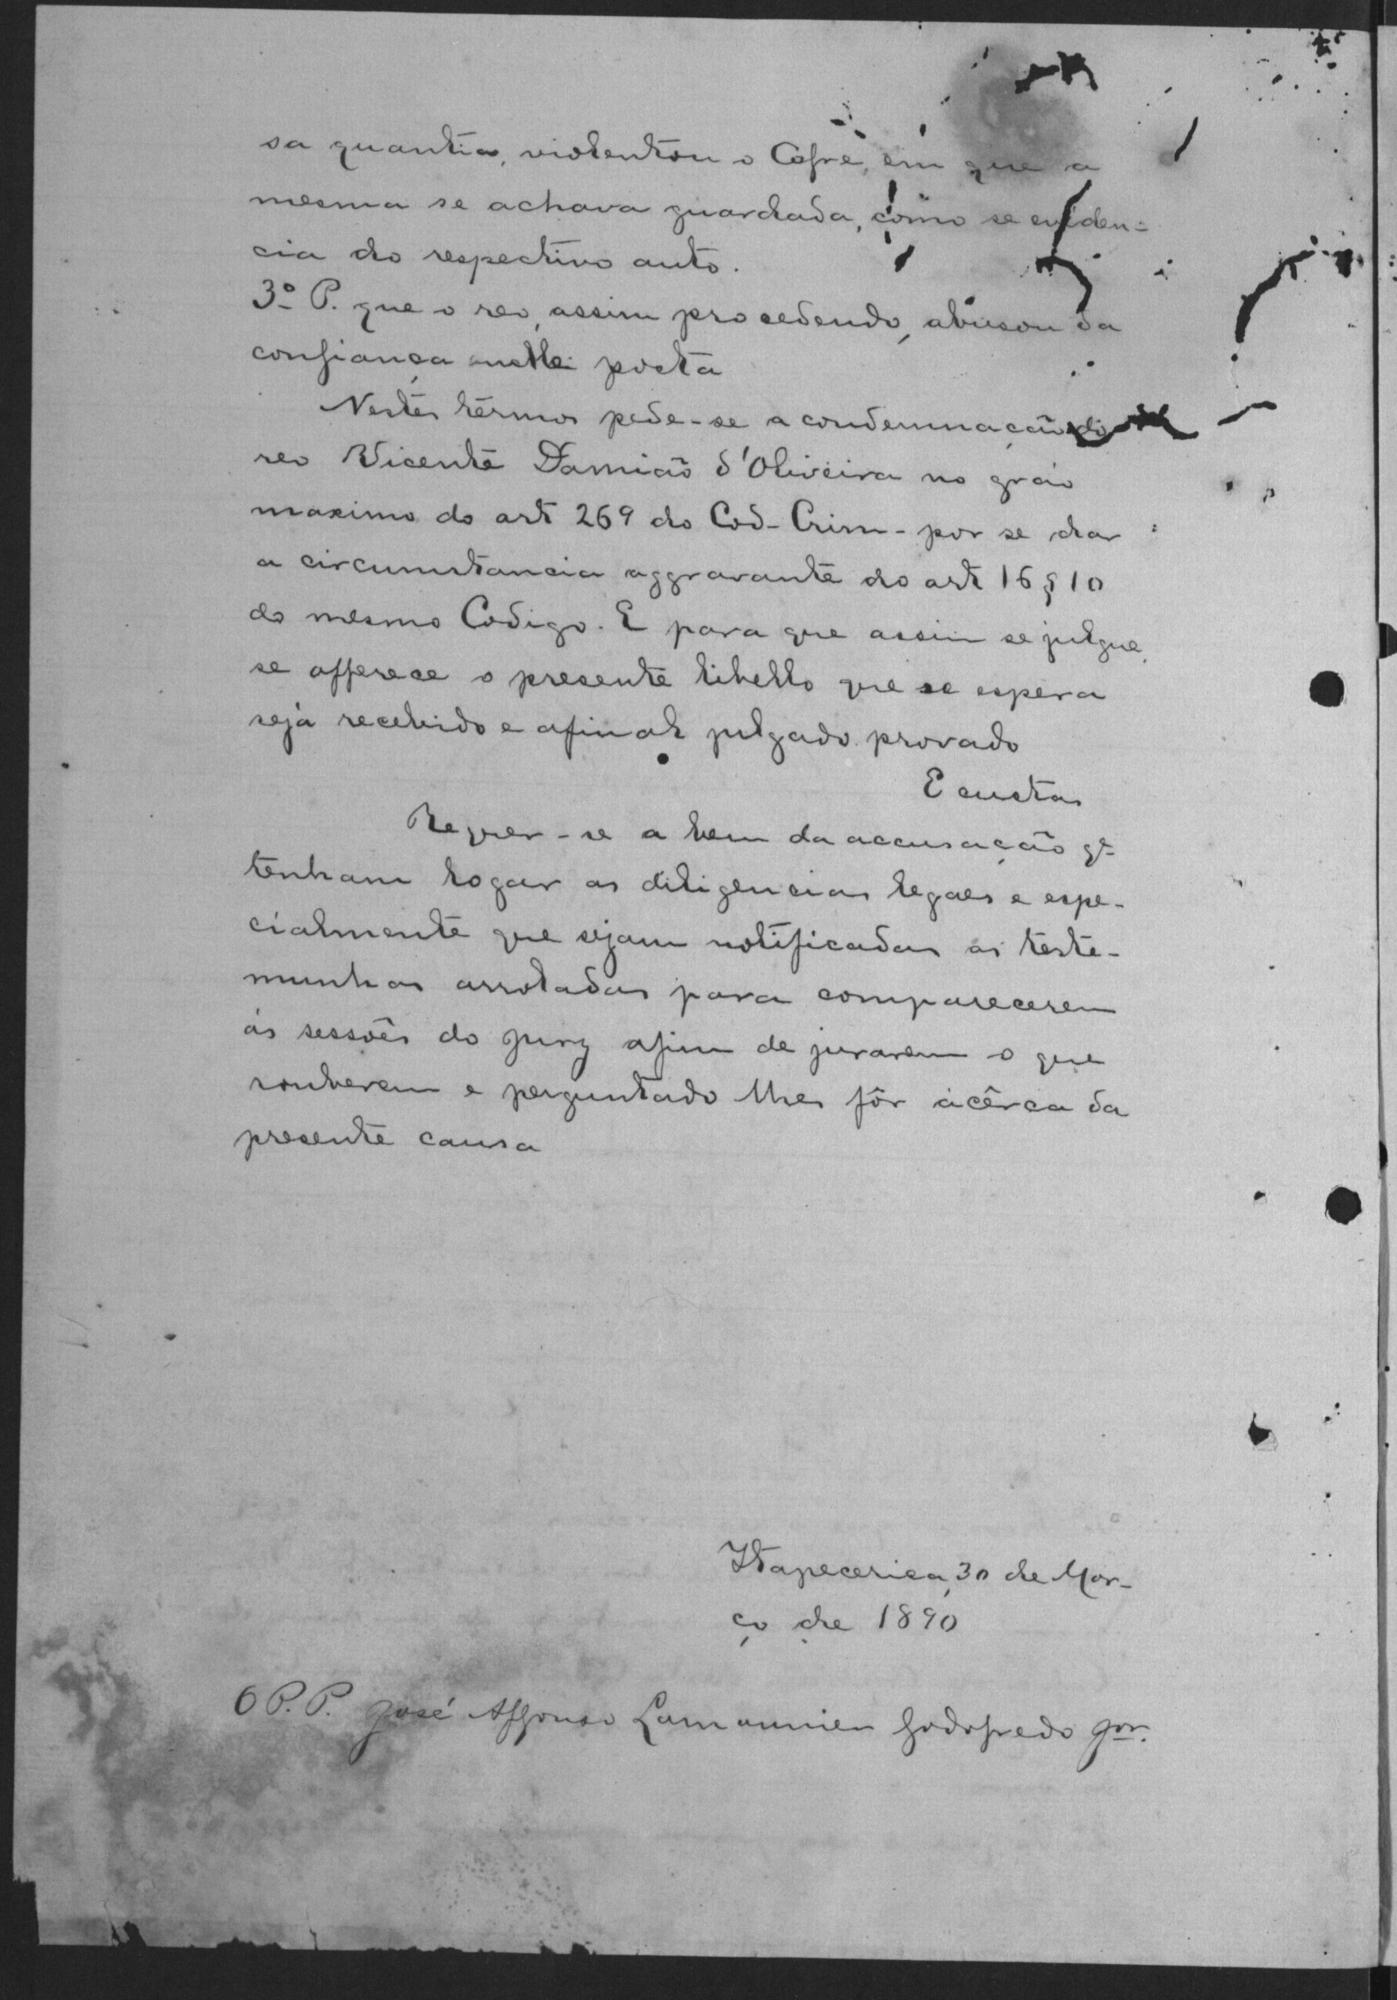 sa quantia, violentou o Cofre, em que a
mesma se achava guardada, como se eviden=
cia do respectivo auto.
3º P. que o reo, assim procedendo, abusou da
confiança nelle posta
Nestes têrmos pede-se a condemnação do
reo Vicente Damião d'Oliveira no gráo
maximo do art 269 do Cod- Crim- por se dar
a circumstancia aggravante do art 16 § 10
do mesmo Codigo. E para que assim se julgue,
se offerece o presente libello que se espera
seja recebido e afinal julgado provado
E custas
Requer-se a bem da accusação qe
tenham logar as diligencias legaes e espe-
cialmente que sejam notificadas as teste-
munhas arroladas para comparecerem
ás sessões do Jury afim de jurarem o que
souberem e perguntado lhes fôr ácêrca da
presente causa
Itapecerica, 30 de Mar-
ço de 1890
O P. P. José Affonso Lamounier Godofredo Jor.